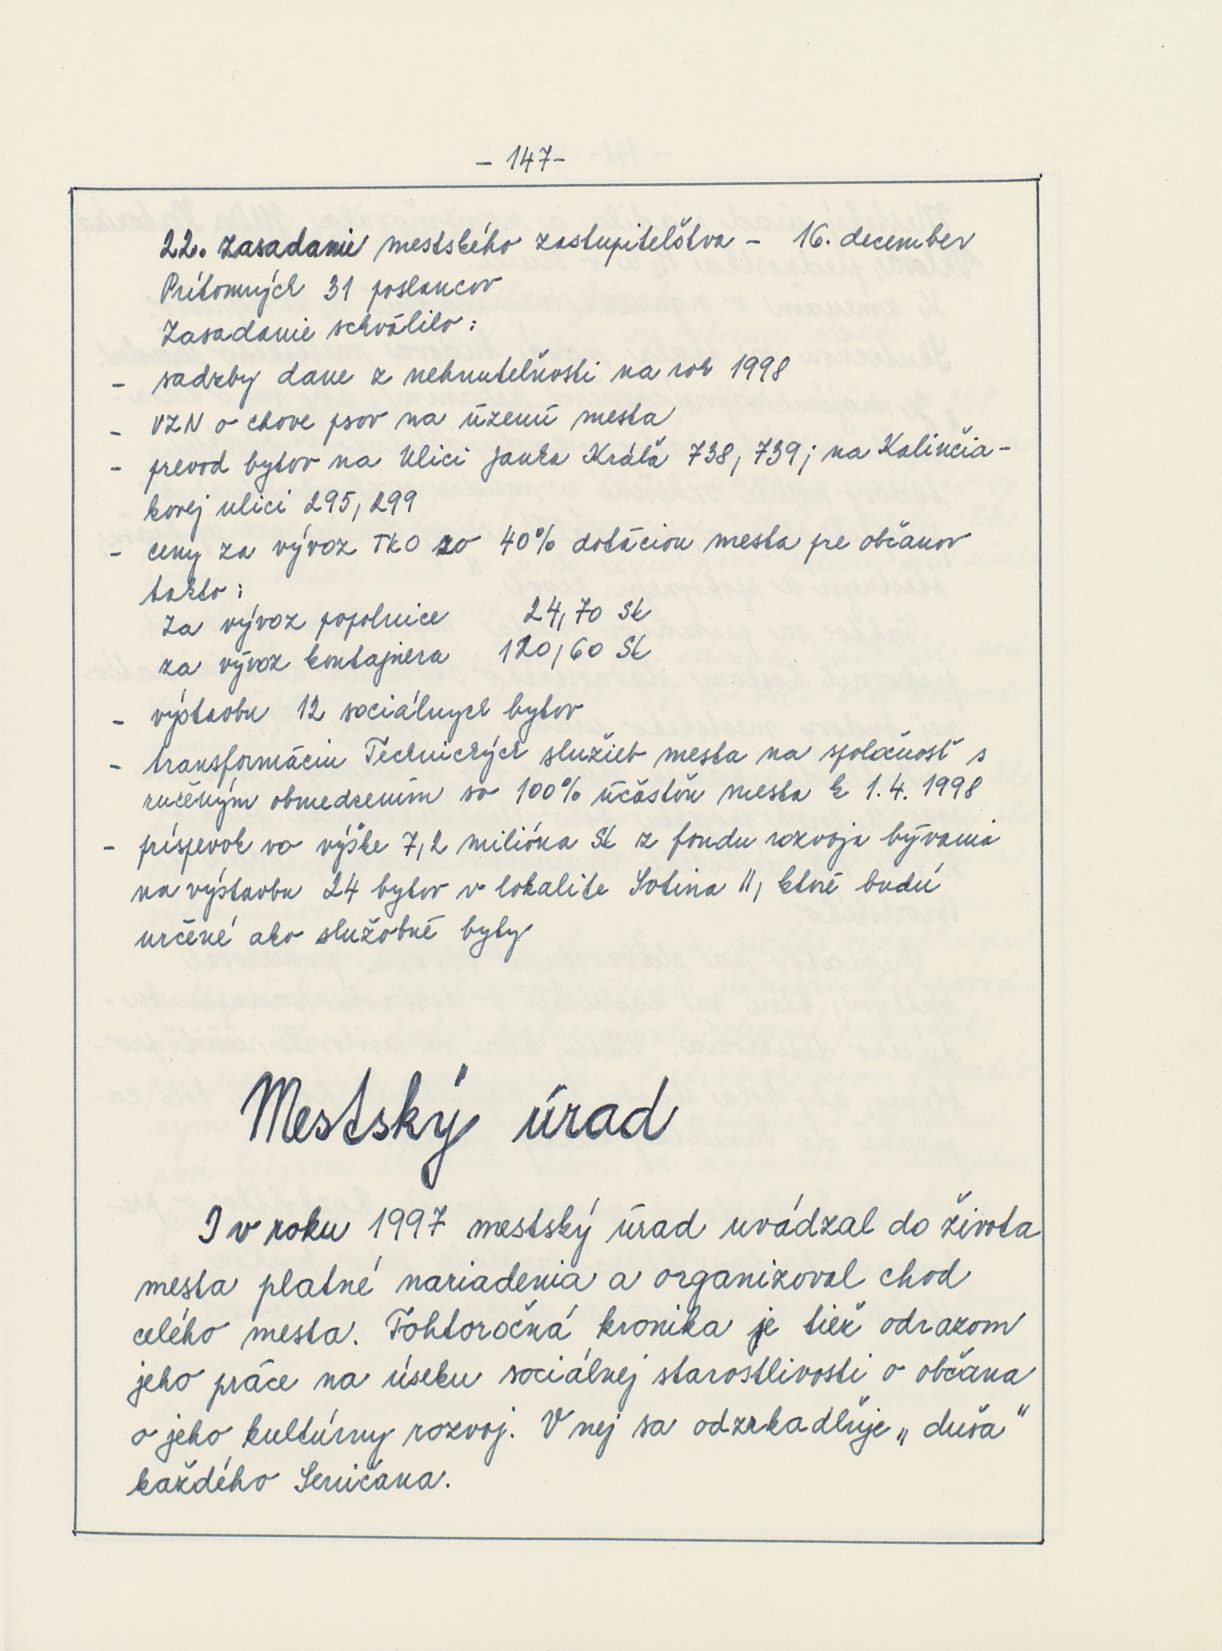 - 147-
22. zasadanie mestského zastupiteľstva - 16. december
Prítomných 31 poslancov
Zasadanie schválilo:
- sadzby dane z nehnuteľnosti na rok 1998
- VZN o chove psov na území mesta
- prevod bytov na Ulici Janka Kráľa 738, 739; na Kalinčia-
kovej ulici 295, 299
- ceny za vývoz TKO so 40% dotáciou mesta pre občanov
takto:
za vývoz popolnice 24,70 Sk
za vývoz kontajnera 120,60 Sk
- výstavbu 12 sociálnych bytov
- transformáciu Technických služieb mesta na spoločnosť s
ručeným obmedzením so 100% účasťou mesta k 1.4. 1998
- príspevok vo výške 7,2 milióna Sk z fondu rozvoja bývania
na výstavbu 24 bytov v lokalite Sotina II, ktoré budú
určené ako služobné byty
Mestský úrad
I v roku 1997 mestský úrad uvádzal do života
mesta platné nariadenia a organizoval chod
celého mesta. Tohtoročná kronika je tiež odrazom
jeho práce na úseku sociálnej starostlivosti o občana
o jeho kultúrny rozvoj. V nej sa odzrkadľuje „duša"
každého Seničana.